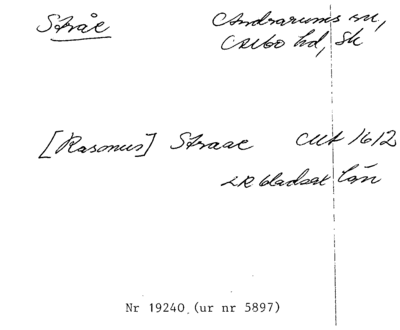 Stråe Andrarums sn,
Albo hd, Sk
[Rasmus] Straae Mt 1612
LR bladsax län
Nr 19240 (ur nr 5897)